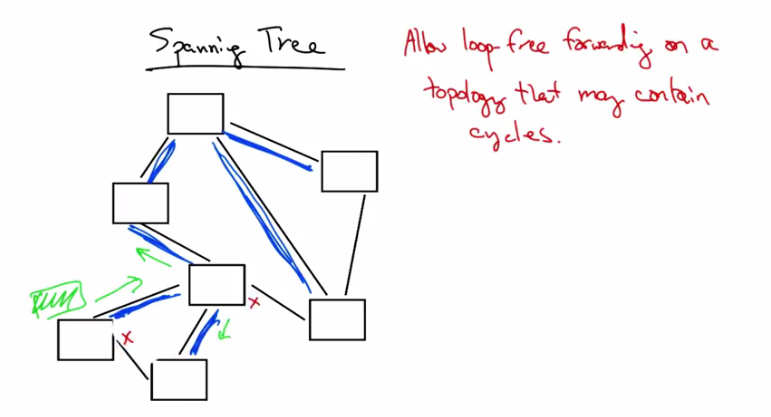 Spanning Tree
Allow loop-free forwarding on a
topology that may contain
cycles.
x
x